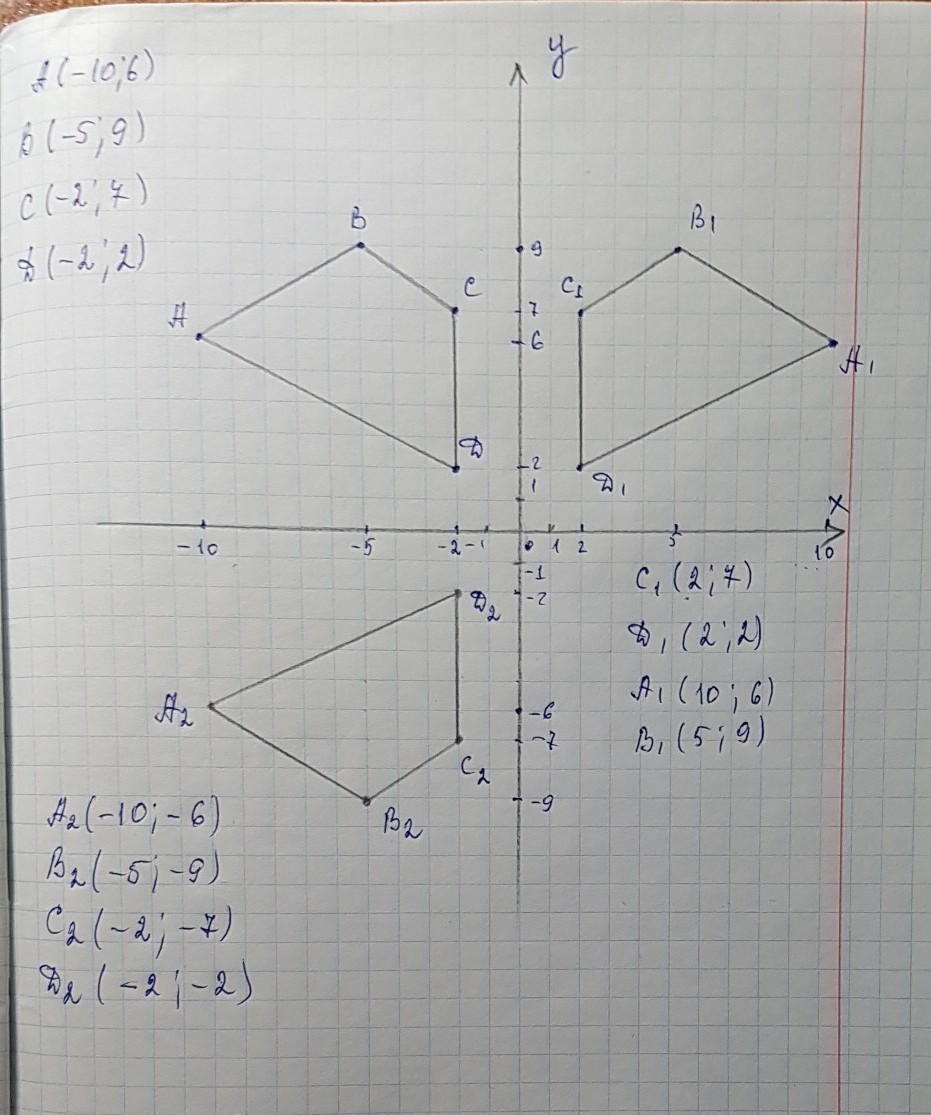 A(-10;6)
B(-5;9)
C(-2;7)
D(-2;2)
y
B
B1
9
C
C1
7
A
6
A1
D
2
D1
1
x
-10
-5
-2
-1
0
1
2
5
10
-1
-2
D2
C1(2;7)
D1(2;2)
A1(10;6)
B1(5;9)
A2
-6
-7
C2
-9
B2
A2(-10;-6)
B2(-5;-9)
C2(-2;-7)
D2(-2;-2)